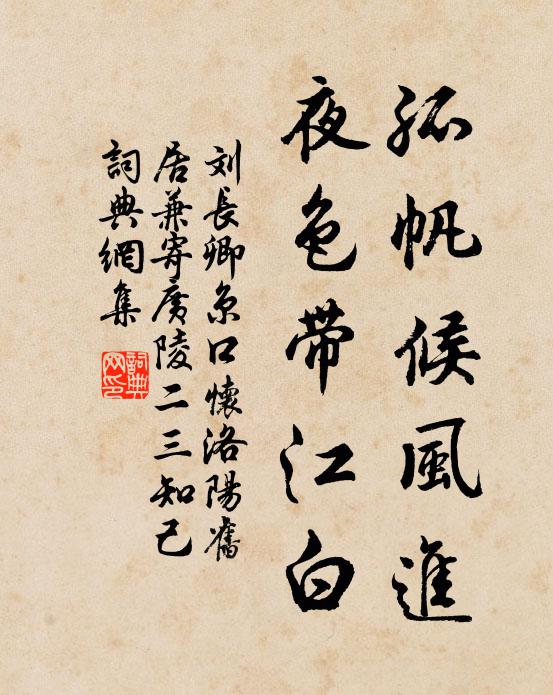 孤帆候風進
夜色帶江白
刘長卿京口懷洛陽舊
居兼寄廣陵二三知己
詞典網集
詞典網印